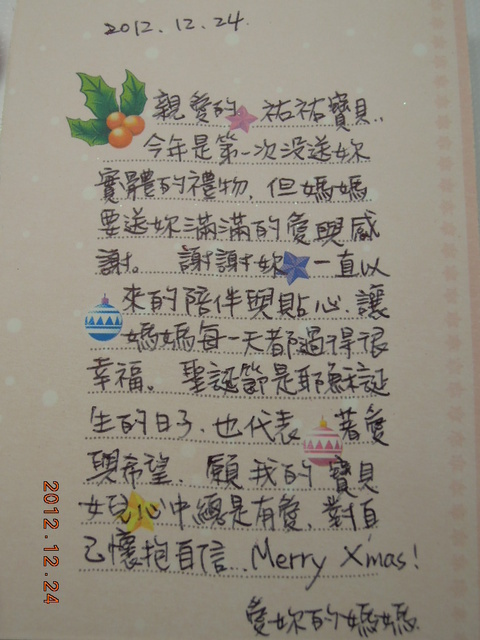 2012.12.24.
親愛的 祐祐寶貝..
今年是第一次沒送妳
實體的禮物, 但媽媽
要送妳滿滿的愛與感
謝。 謝謝妳 一直以
來的陪伴與貼心, 讓
媽媽每一天都過得很
幸福。 聖誕節是耶穌誕
生的日子, 也代表 著愛
與希望, 願我的寶貝
女兒心中總是有愛, 對自
己懷抱自信... Merry X'mas!
愛妳的媽媽.
2012.12.24